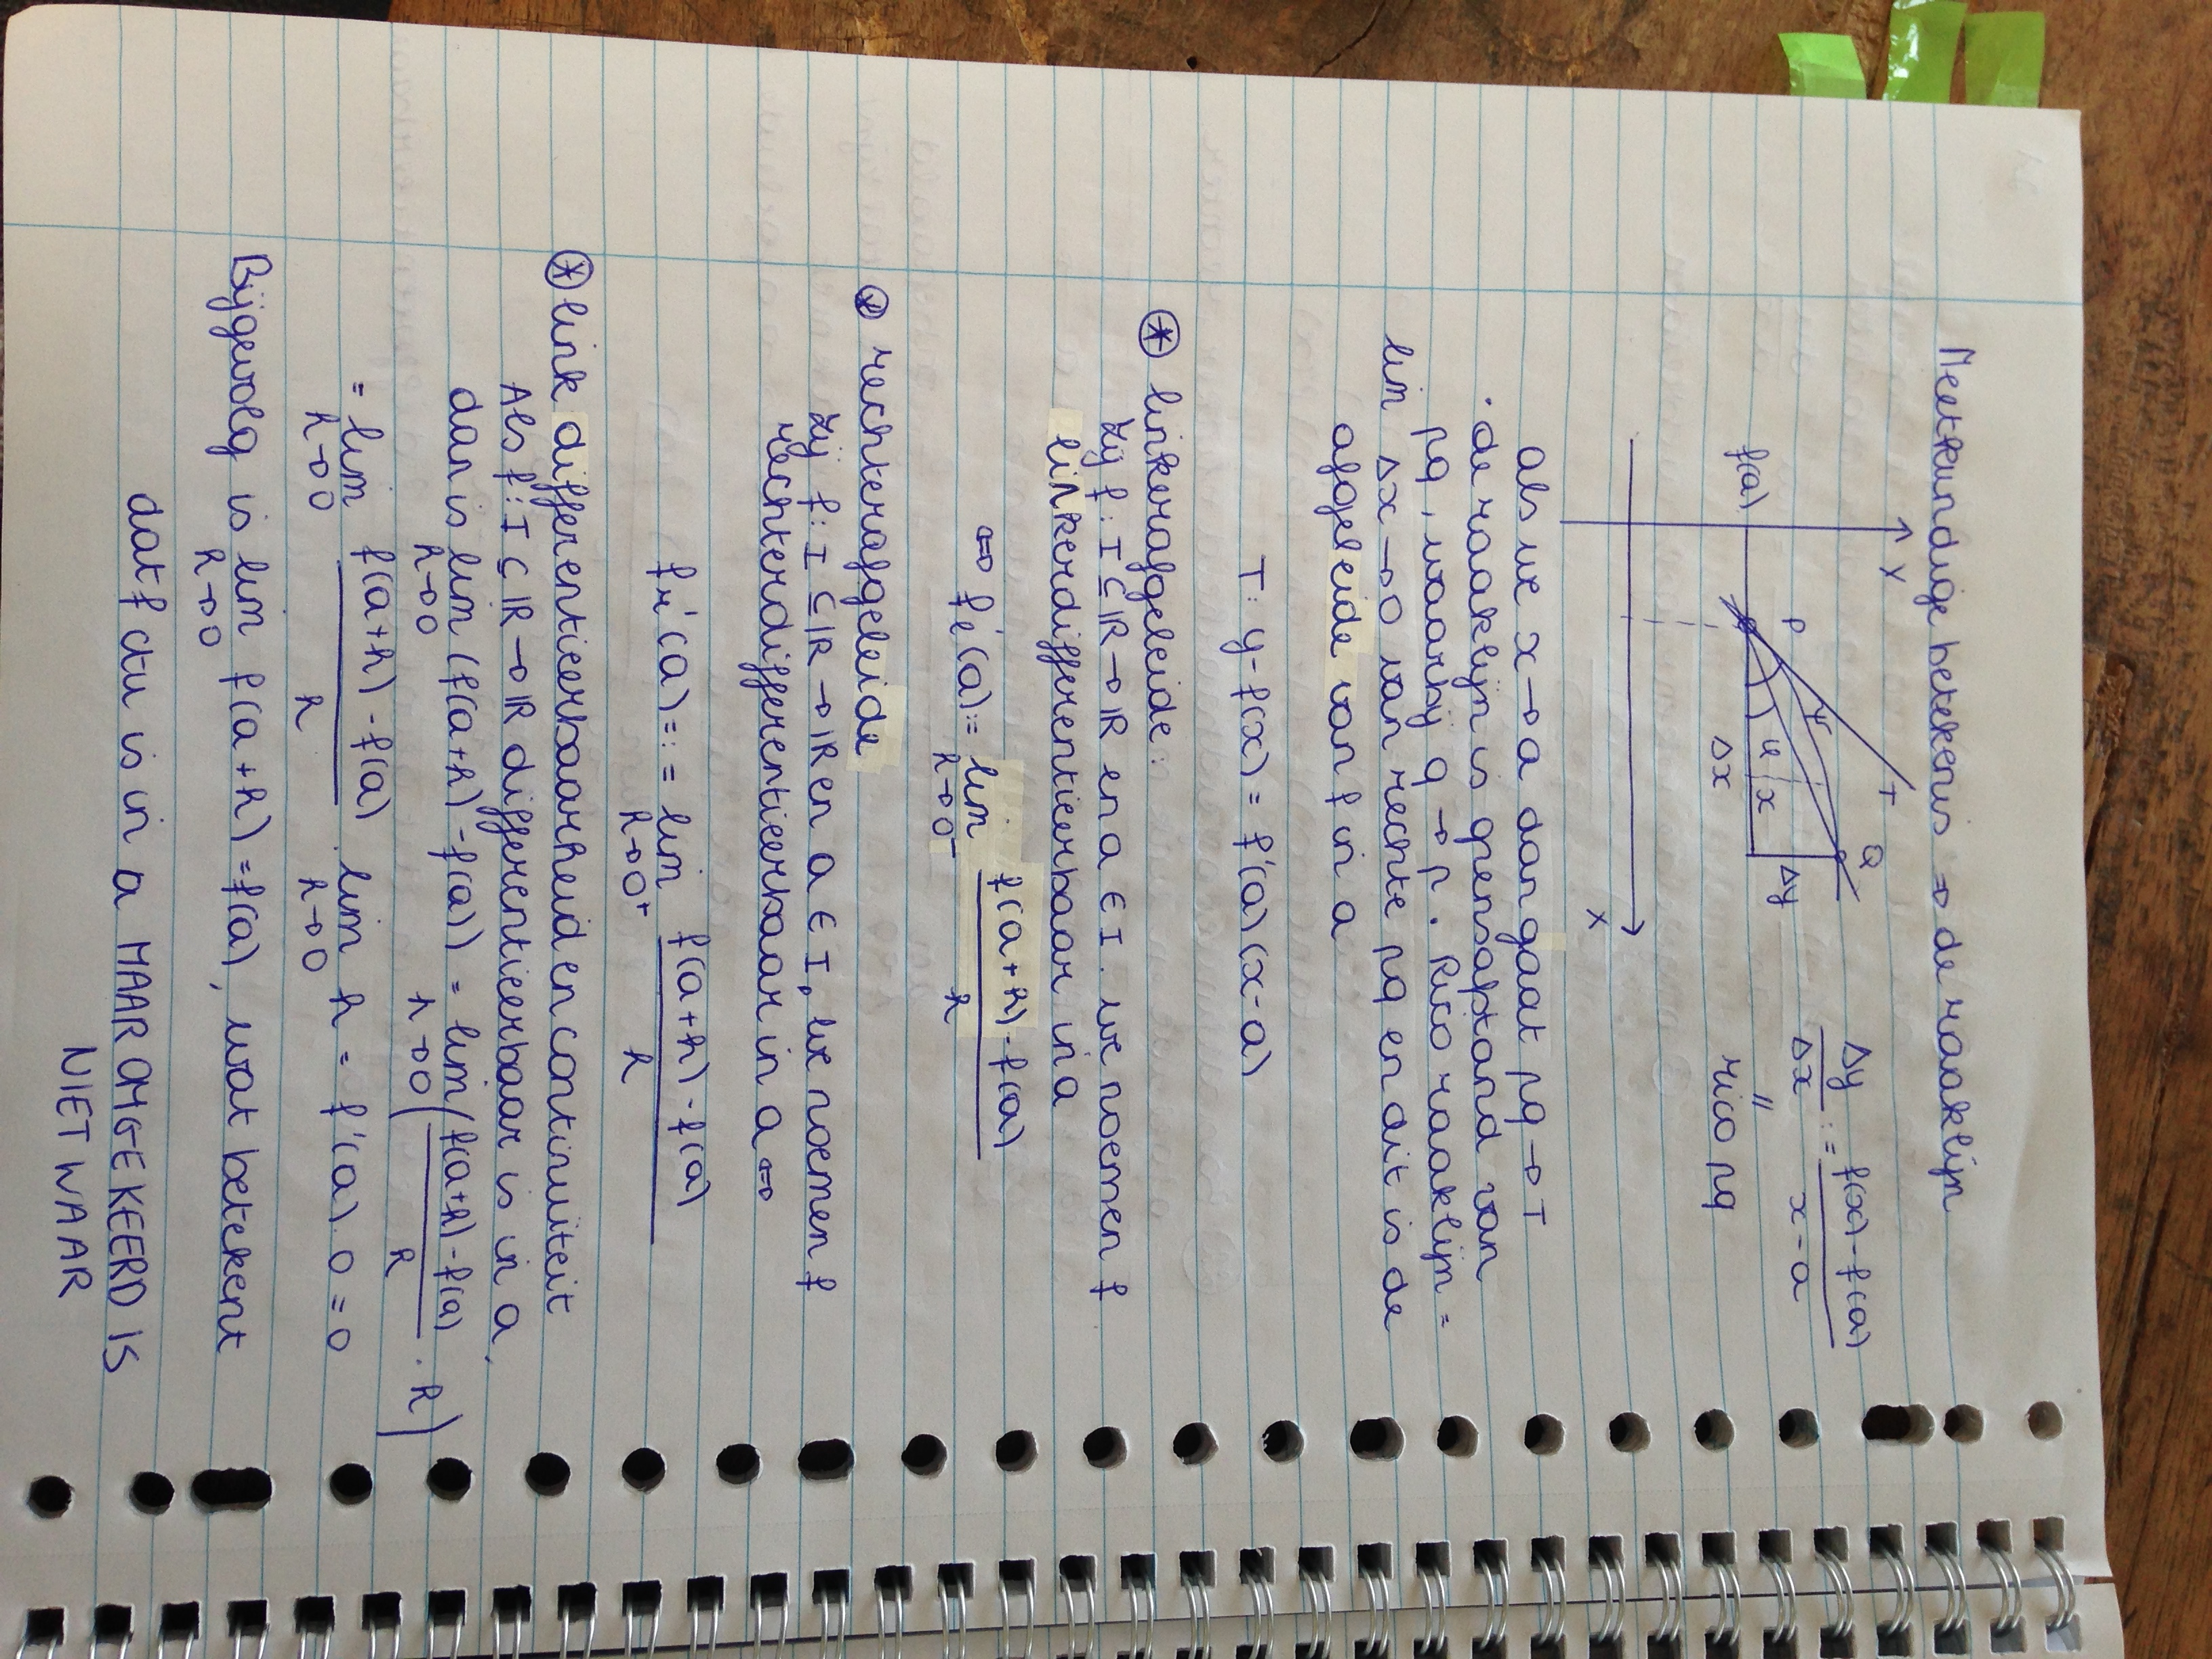 Meetkundige betekenis ⇒ de raaklijn
Y
T
Q
P
ψ
φ
x
Δy
f(a)
Δx
X
Δy/Δx := (f(x) - f(a))/(x - a)
=
rico pq
Als we x → a dan gaat pq → T
· de raaklijn is grensafstand van
pq, waarbij q → p. Rico raaklijn =
lim Δx → 0 van rechte pq en dit is de
afgeleide van f in a
T: y - f(x) = f'(a)(x-a)
⊛ linkerafgeleide:
Zij f: I ⊆ ℝ → ℝ en a ∈ I. we noemen f
linkerdifferentieerbaar in a
⇔ fℓ'(a) := lim h→0⁻ (f(a+h) - f(a))/h
⊛ rechterafgeleide
Zij f: I ⊆ ℝ → ℝ en a ∈ I, we noemen f
rechterdifferentieerbaar in a ⇔
fr'(a) =: = lim h→0⁺ (f(a+h) - f(a))/h
⊛ link differentieerbaarheid en continuïteit
Als f: I ⊆ ℝ → ℝ differentieerbaar is in a,
dan is lim h→0 (f(a+h) - f(a)) = lim h→0 ((f(a+h) - f(a))/h · h)
= lim h→0 (f(a+h) - f(a))/h · lim h→0 h = f'(a) · 0 = 0
Bijgevolg is lim h→0 f(a+h) = f(a), wat betekent
dat f ctu is in a MAAR OMGEKEERD IS
NIET WAAR